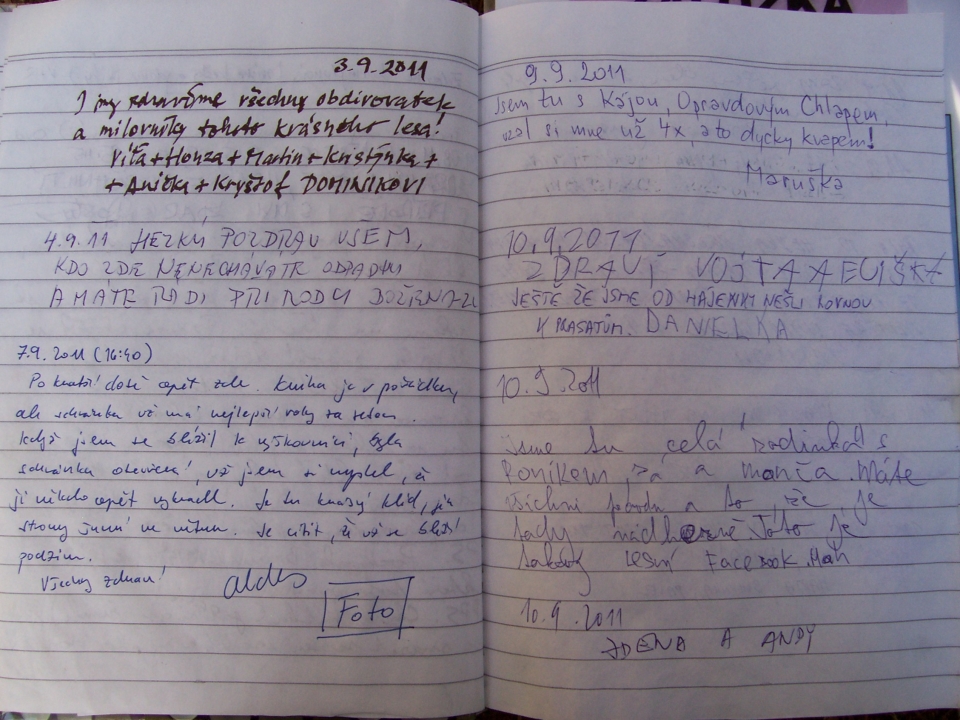 3.9.2011
I my zdravíme všechny obdivovatele
a milovníky tohoto krásného lesa!
Víťa+Honza+Martin+Kristýnka+
+Anička+Kryštof DOMINIKOVI
4.9.11 HEZKÝ POZDRAV VŠEM,
KDO ZDE NENECHÁVÁTE ODPADKY
A MÁTE RÁDI PŘÍRODU
7.9.2011 (16:40)
Po kratší době opět zde. Kniha je v pořádku,
ale schránka už má nejlepší roky za sebou.
Když jsem se blížil k, byla
schránka otevřená, už jsem si myslel, že
ji někdo opět vykradl. Je tu krásný klid, jen
stromy šumí ve větru. Je cítit, že už se blíží
podzim.
Všechny zdraví!
aldes
Foto
9.9.2011
Jsem tu s Kájou, Opravdovým Chlapem,
vzal si mne už 4x, a to dycky kvapem!
Maruška
10.9.2011
ZDRAVÍ VOJTA A ELIŠKA
JEŠTĚ ŽE JSME OD HÁJENKY NEŠLI ROVNOU
K PRASATŮM. DANIELKA
10.9 2011
jsme tu celá rodinka s
Roníkem, já a monča. Máte
všichni a to, že je
tady nádherně Toto je
takový Lesní Facebook.
10.9.2011
ZDENA A ANDY